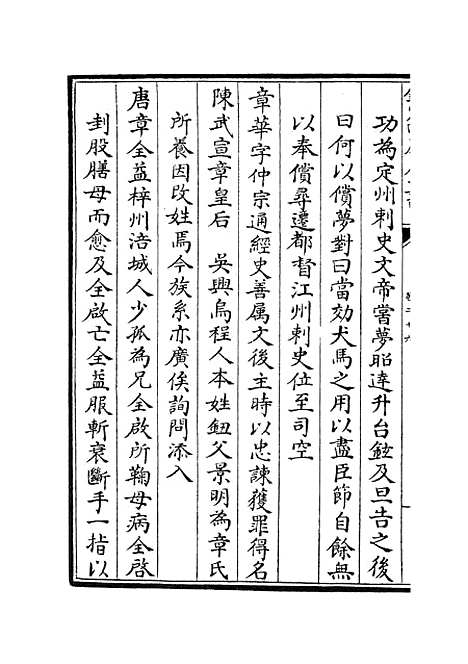 功為定州刺史文帝嘗夢昭達升台鉉及旦告之後
曰何以償夢對曰當効犬馬之用以盡臣節自餘無
以奉償尋遷都督江州刺史位至司空
章華字仲宗通經史善属文後主時以忠諫獲罪得名
陳武宣章皇后　吳興烏程人本姓鈕父景明為章氏
所養因改姓焉今族系亦廣俟詢問添入
唐章全益梓州涪城人少孤為兄全啟所鞠母病全啓
刲股膳母而愈及全啟亡全益服斬衰斷手一指以